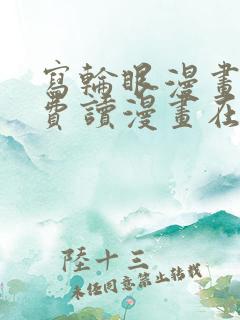 寫輪眼漫畫
費讀漫畫在
陸十三
未經同意禁止轉載